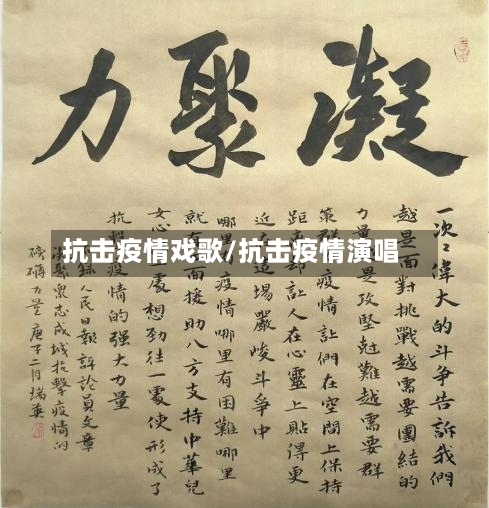 凝聚力
抗击疫情戏歌/抗击疫情演唱
一次々偉大的斗争告訴我們
越是面對挑戰越需要團結的
力量是攻堅尅難越需要群
策群疫情讓們在空間上保持
距却讓人在心靈上貼得更
近在這場嚴峻斗争中
哪里疫情哪里有困難哪里
就有面援助八方支持中華兒
女心處想勁往一處使形成了
抗擊疫情的强大力量
錄人民日報評論員文章
凝聚衆志成城抗擊疫情的
磅礴力量庚子二月瑞英